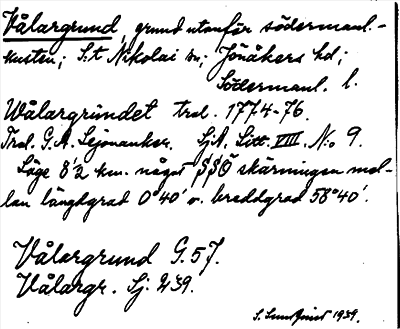 Vålargrund, grund utanför södermanl.-
kusten; S:t Nikolai sn; Jönåkers hd;
Södermanl. l.
Wålargrundet trol. 1774-76.
Trol. G. A. Lejonanker. SjA. Litt. VIII. No 9.
Läge 8'2 km. något SSO skärningen mel-
lan längdgrad 0°40' o. breddgrad 58°40'.
Vålargrund G. 57.
Vålargr. Sj. 239.
S. Lundquist 1939.